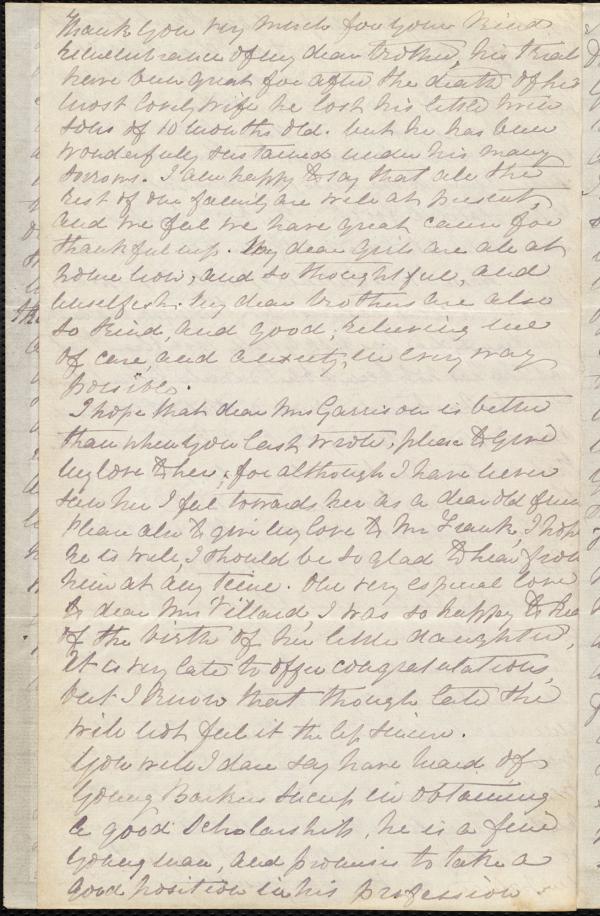 Thank you very much for your kind
remembrance of my dear brother, his trials
have been great for after the death of his
most lovely wife he lost his little twin
sons of 10 months old. but he has been
wonderfully sustained under his many
sorrows. I am happy to say that all the
rest of our family are well at present,
and we feel we have great cause for
thankfulness. My dear girls are all at
home now, and so thoughtful, and
unselfish. My dear brothers are also
so kind, and good, relieving me
of care, and anxiety, in every way
possible.
I hope that dear Mrs Garrison is better
than when you last wrote, please to give
my love to her, for although I have never
seen her I feel towards her as a dear old friend
Please also to give my love to Mr Frank, I hope
he is well, I should be so glad to hear from
him at any time. Our very especial love
to dear Mrs Villard, I was so happy to hear
of the birth of her little daughter,
it is very late to offer congratulations,
but I know that though late she
will not feel it the less sincere.
You will I dare say have heard of
young Barkers success in obtaining
a good Scholarship, he is a fine
young man, and promises to take a
good position in his profession.